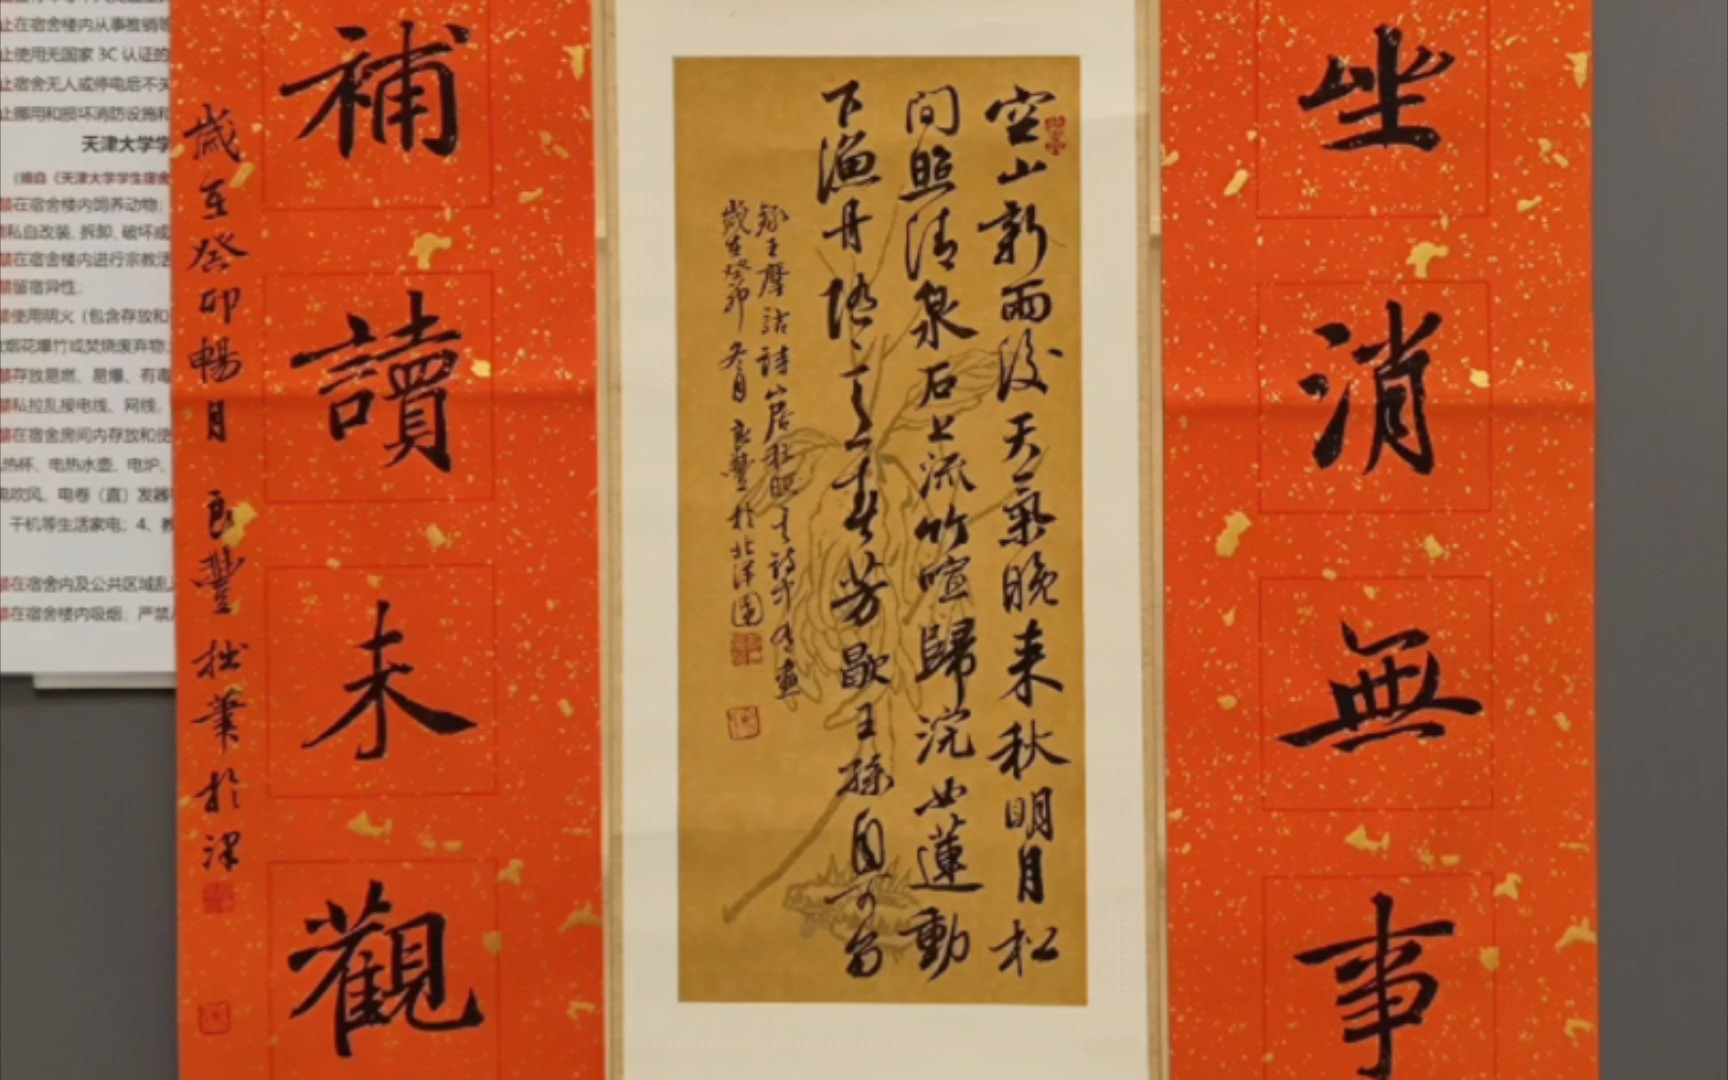 坐消無事
空山新雨後天氣晚来秋明月松
间照清泉石上流竹喧歸浣女蓮動
下漁舟随意春芳歇王孫自可留
録王摩詰詩山居秋暝
歲在癸卯冬月良豐於北洋園
補讀未觀
歲在癸卯暢月良豐拙筆於津
止在宿舍楼内从事推销等
止使用无国家3C认证的
止宿舍无人或停电后不关
止挪用和损坏消防设施和
天津大学学
（摘自《天津大学学生宿舍
禁在宿舍楼内饲养动物；
私自改装、拆卸、破坏或
禁在宿舍楼内进行宗教活
禁留宿异性；
禁使用明火（包含存放和
烟花爆竹或焚烧废弃物；
禁存放易燃、易爆、有毒
禁私拉乱接电线、网线，
禁在宿舍房间内存放和使
热杯、电热水壶、电炉、
电吹风、电卷（直）发器
干机等生活家电；4、教
禁在宿舍内及公共区域乱
禁在宿舍楼内吸烟，严禁